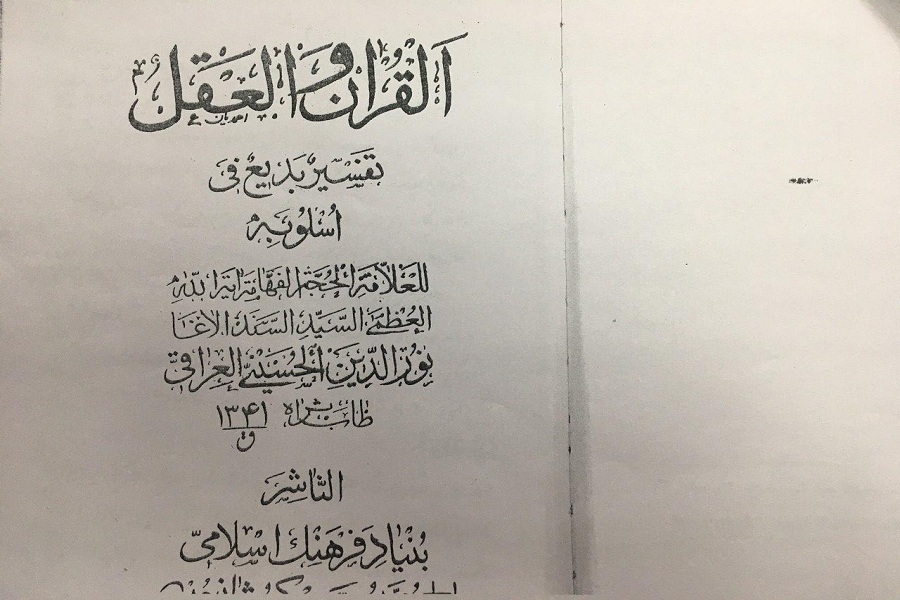 اَلْقُرْاٰنُ وَالْعَقْلُ
تَفسِیرٌ بَدیعٌ فی
اُسْلُوبِه
لِلعَلاّمَةِ الحُجَّةِ الفَهّامَةِ ایَةِ اللّٰهِ
العُظمیٰ السَّیِّدِ السَّنَدِ الاغا
نورُ الدّینِ الحُسَینیِّ العِراقیّ
طابَ ثراه ۱۳۴۱
ق
النّاشِر
بُنیادِ فَرهَنك اسلامیّ